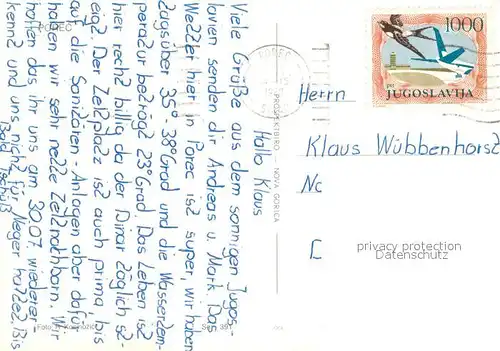 POREČ
Hallo Klaus
Viele Grüße aus dem sonnigen Jugos-
lavien senden dir Andreas u. Mark. Das
Wetter hier in Porec ist super, wir haben
Tagsüber 35°-38°Grad und die Wassertem-
peratur beträgt 23°Grad. Das Leben ist
hier recht billig da der Dinar täglich st-
eigt. Der Zeltplatz ist auch prima, bis
auf die Sanitären-Anlagen aber dafür
haben wir sehr nette Zeltnachbarn. Wir
hoffen das ihr uns am 30.07 wiederer-
kennt und uns nicht für Neger haltet. Bis
Bald
Tschüß
PROSJEKTBIRO - NOVA GORICA
1000
JUGOSLAVIJA
Herrn
Klaus Wübbenhorst
Nc
[
privacy protection
Datenschutz